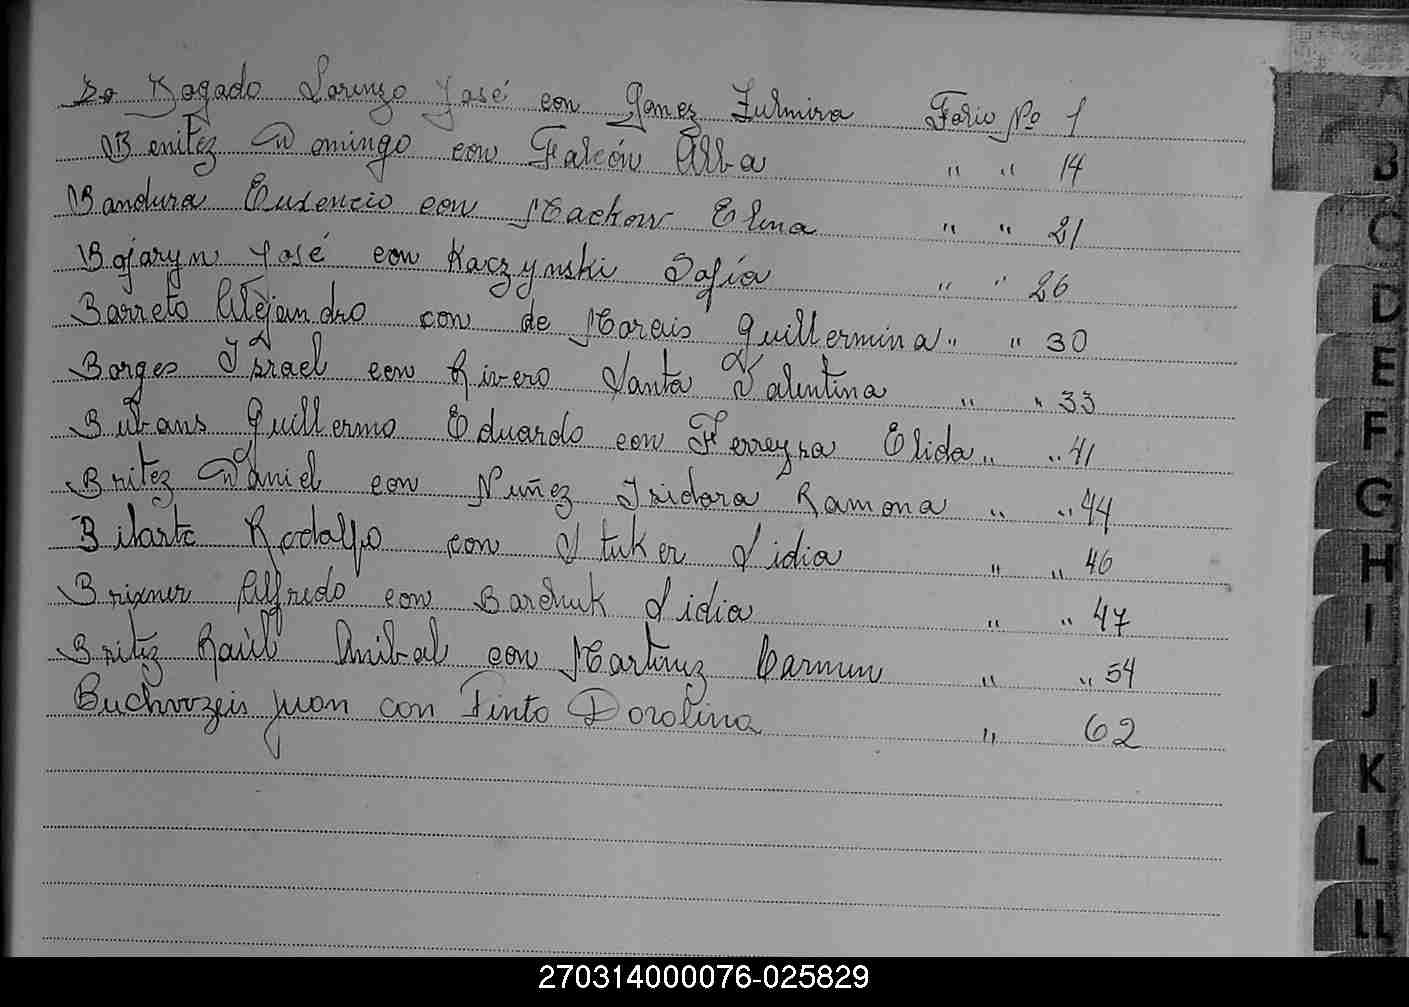 Bo Bogado Lorenzo José con Gomez Zulmira Folio Nº 1
Benitez Domingo con Falcón Alba " " 14
Bandura Eusencio con Machow Elma " " 21
Bojaryn José con Kaczynski Sofía " " 26
Barreto Alejandro con de Morais Guillermina " " 30
Borges Israel con Rivero Santa Valentina " " 33
Bubans Guillermo Eduardo con Ferreyra Elida " " 41
Britez Daniel con Nuñez Isidora Ramona " " 44
Bilarte Rodolfo con Stuker Lidia " " 46
Brixner Alfredo con Barchuk Lidia " " 47
Britez Raúl Anibal con Martinez Carmen " " 54
Juan con Pinto Dorolina " 62
A
B
C
D
E
F
G
H
I
J
K
L
LL
270314000076-025829